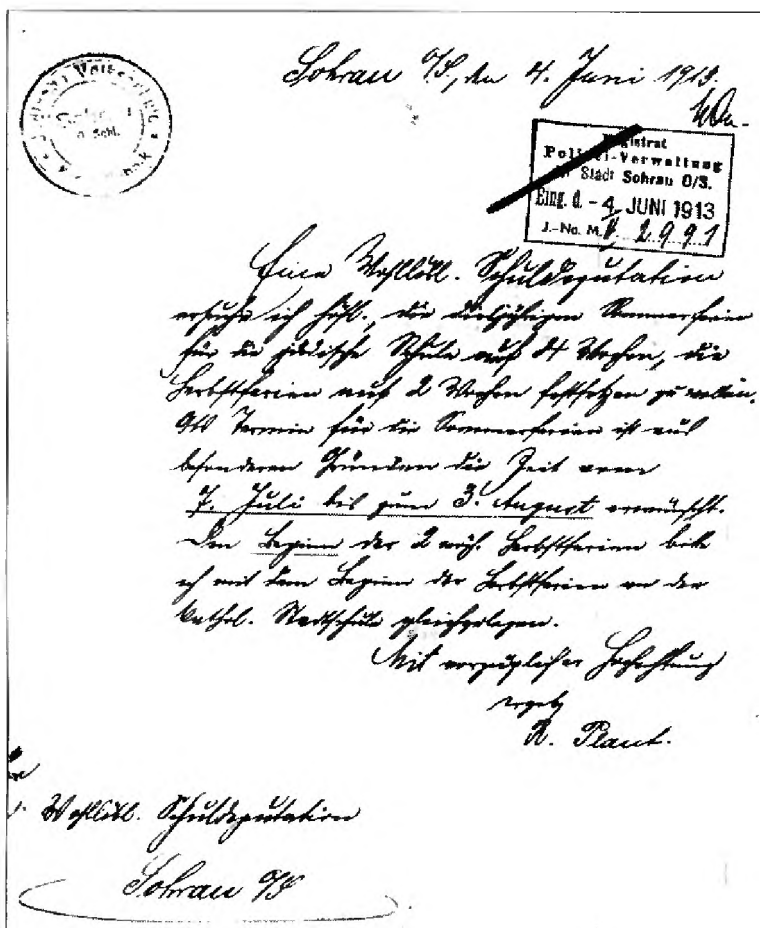 Sohrau O/S., den 4. Juni 1913.
Magistrat
Polizei-Verwaltung
der Stadt Sohrau O/S.
Eing. d. - 4. JUNI 1913
J.-No. M. 2991
Eine Wohllöbl. Schuldeputation
ersuche ich höfl., die diesjährigen Sommerferien
für die jüdische Schule auf 4 Wochen, die
Herbstferien auf 2 Wochen festsetzen zu wollen.
Als Termin für die Sommerferien ist aus
besonderen Gründen die Zeit vom
7. Juli bis zum 3. August erwünscht.
Den Beginn der 2 wöch. Herbstferien bitte
ich mit dem Beginn der Herbstferien an der
kathol. Stadtschule gleichzulegen.
Mit vorzüglicher Hochachtung
ergeb.
R. Plaut.
Wohllöbl. Schuldeputation
Sohrau O/S